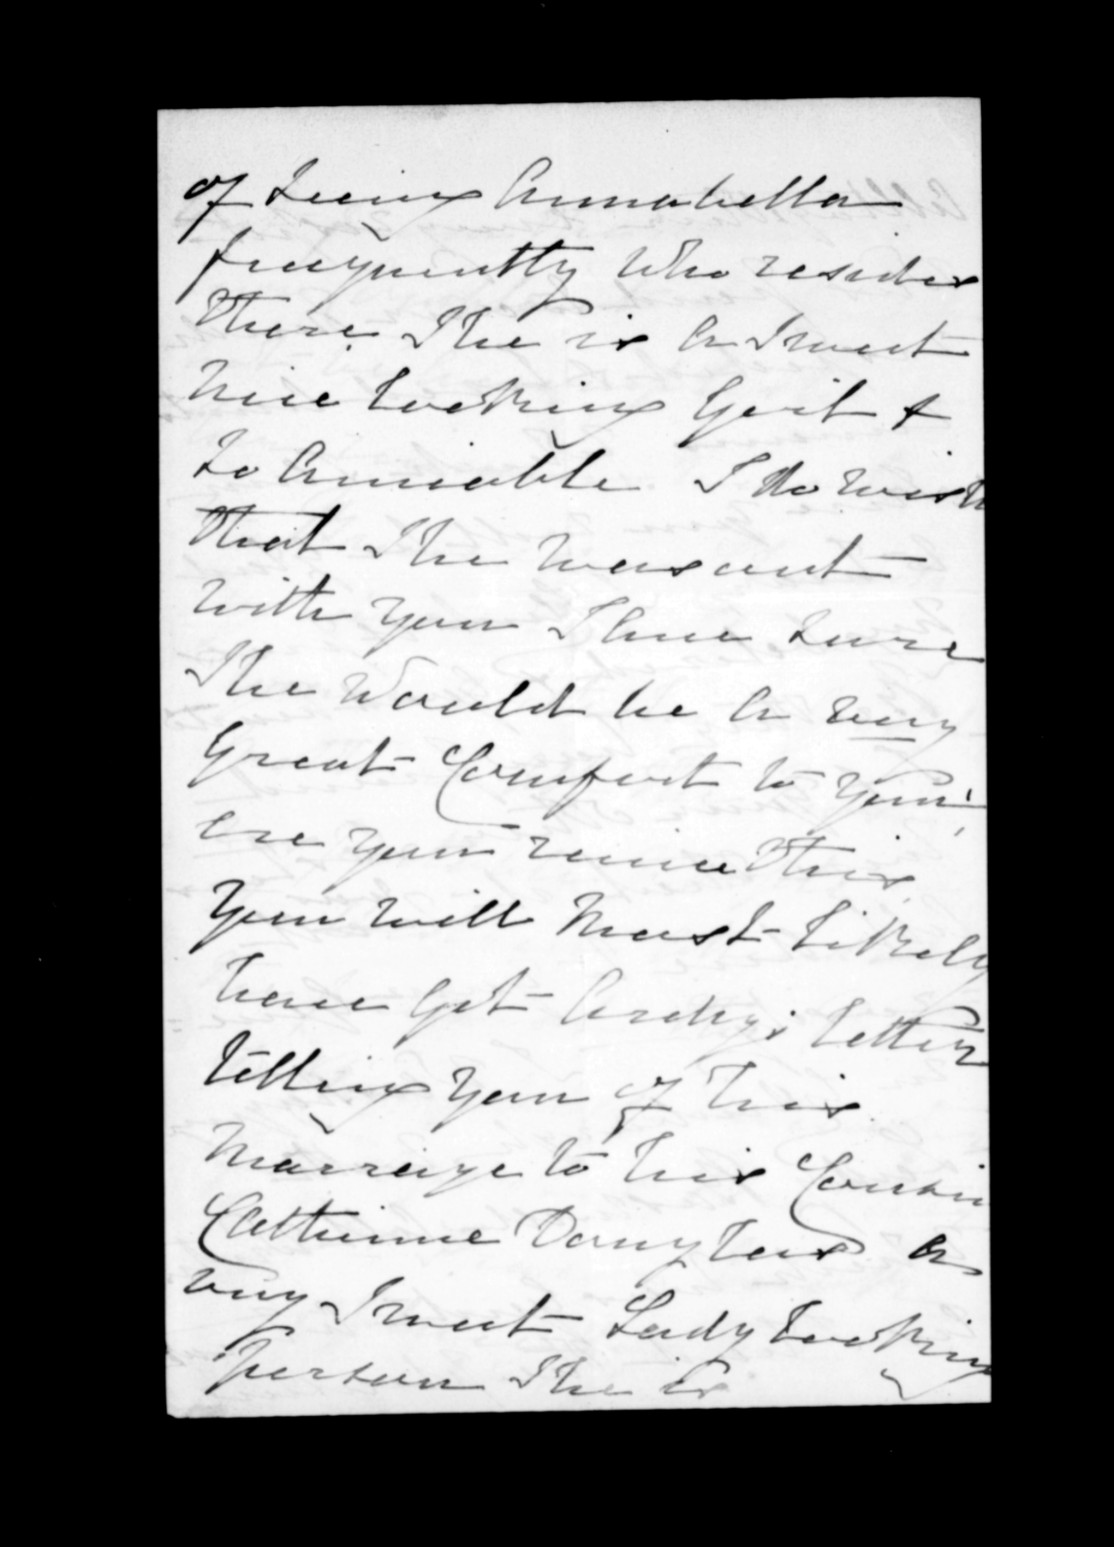 of Seeing Annabella
frequently Who resides
there. She is a Sweet
nice looking Girl &
So Amiable I do wish
that She was out
with you I have sure
She would be a very
Great Comfort to you,
ere you receive this
you will Most Likely
have got Andys letter
telling you of his
Marraige to his Cousin
Catherine Douglas a
very Sweet Lady looking
person She is